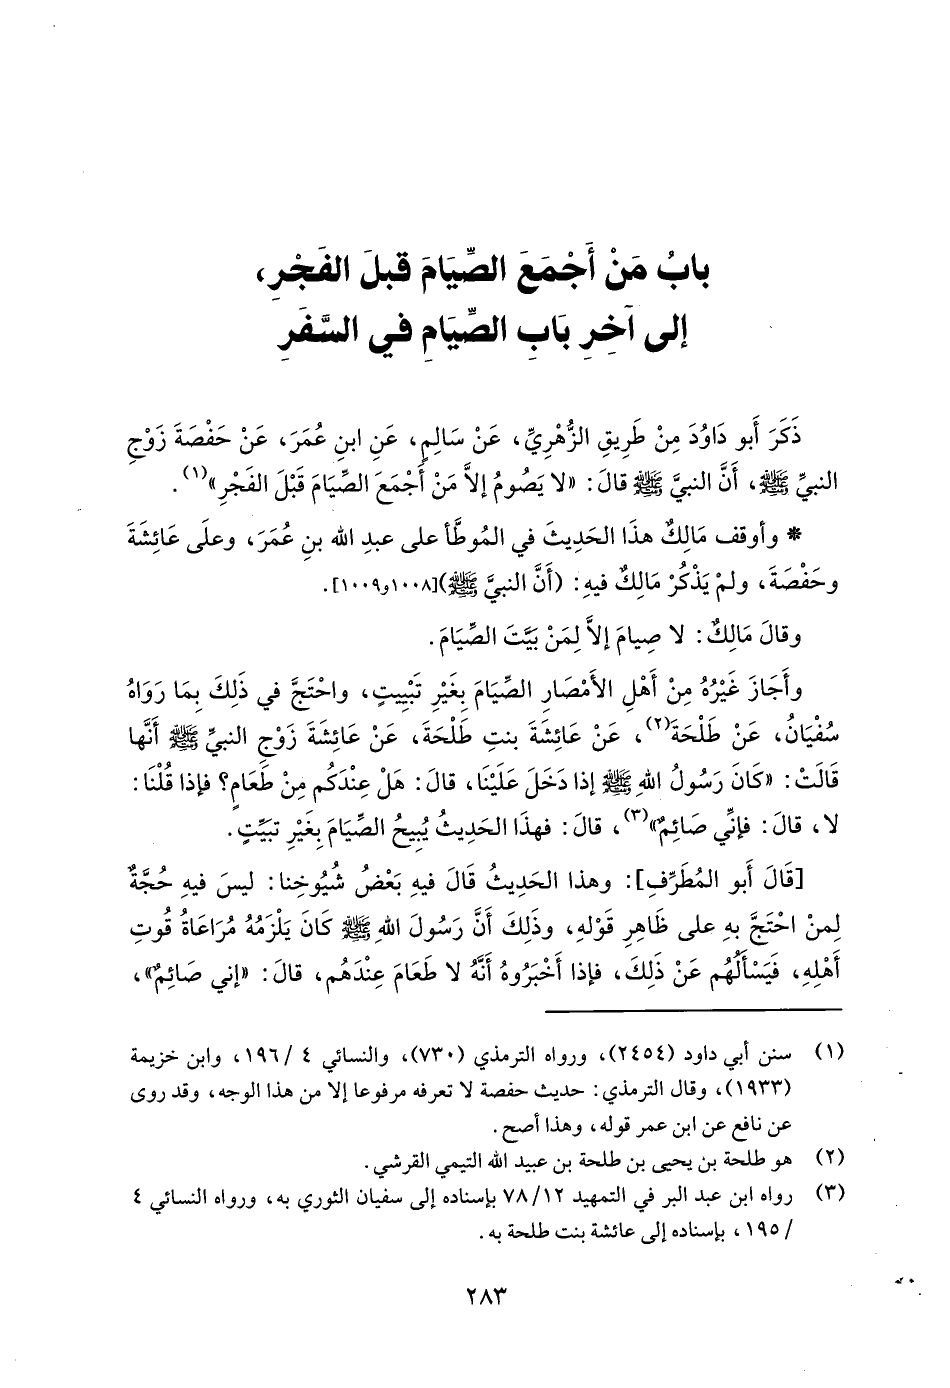 بابُ مَنْ أَجْمَعَ الصِّيَامَ قبلَ الفَجْرِ،
إلى آخِرِ بَابِ الصِّيَامِ في السَّفَرِ
ذَكَرَ أَبو دَاوُدَ مِنْ طَرِيقِ الزُّهْرِيِّ، عَنْ سَالِمٍ، عَنِ ابنِ عُمَرَ، عَنْ حَفْصَةَ زَوْجِ
النبيِّ ﷺ، أَنَّ النبيَّ ﷺ قالَ: «لا يَصُومُ إلاَّ مَنْ أَجْمَعَ الصِّيَامَ قَبْلَ الفَجْرِ»(١).
* وأوقف مَالِكٌ هذَا الحَدِيثَ في المُوطَّأ على عبدِ الله بنِ عُمَرَ، وعلَى عَائِشَةَ
وحَفْصَةَ، ولمْ يَذْكُرْ مَالِكٌ فيهِ: (أَنَّ النبيَّ ﷺ)[١٠٠٨و١٠٠٩].
وقالَ مَالِكٌ: لا صِيامَ إلاَّ لِمَنْ بَيَّتَ الصِّيَامَ.
وأَجَازَ غَيْرُهُ مِنْ أَهْلِ الأَمْصَارِ الصِّيَامَ بِغَيْرِ تَبْيِيتٍ، واحْتَجَّ في ذَلِكَ بِمَا رَوَاهُ
سُفْيَانُ، عَنْ طَلْحَةَ(٢)، عَنْ عَائِشَةَ بنتِ طَلْحَةَ، عَنْ عَائِشَةَ زَوْجِ النبيِّ ﷺ أَنَّها
قَالَتْ: «كَانَ رَسُولُ اللهِ ﷺ إذا دَخَلَ عَلَيْنَا، قالَ: هَلْ عِنْدَكُم مِنْ طَعَامٍ؟ فإذا قُلْنَا:
لا، قالَ: فإنِّي صَائِمٌ»(٣)، قالَ: فهذَا الحَدِيثُ يُبِيحُ الصِّيَامَ بِغَيْرِ تبَيِّتٍ.
[قَالَ أَبو المُطَرِّفِ]: وهذا الحَدِيثُ قَالَ فيهِ بَعْضُ شُيُوخِنا: ليسَ فيهِ حُجَّةٌ
لِمنْ احْتَجَّ بهِ على ظَاهِرِ قَوْلِهِ، وذَلِكَ أَنَّ رَسُولَ اللهِ ﷺ كَانَ يَلْزَمُهُ مُرَاعَاةُ قُوتِ
أَهْلِهِ، فَيَسْأَلُهُم عَنْ ذَلِكَ، فإذا أَخْبَرُوهُ أنَّهُ لا طَعَامَ عِنْدَهُم، قالَ: «إني صَائِمٌ»،
(١) سنن أبي داود (٢٤٥٤)، ورواه الترمذي (٧٣٠)، والنسائي ٤ /١٩٦، وابن خزيمة
(١٩٣٣)، وقال الترمذي: حديث حفصة لا تعرفه مرفوعا إلا من هذا الوجه، وقد روى
عن نافع عن ابن عمر قوله، وهذا أصح.
(٢) هو طلحة بن يحيى بن طلحة بن عبيد الله التيمي القرشي.
(٣) رواه ابن عبد البر في التمهيد ٧٨/١٢ بإسناده إلى سفيان الثوري به، ورواه النسائي ٤
/١٩٥، بإسناده إلى عائشة بنت طلحة به.
٢٨٣